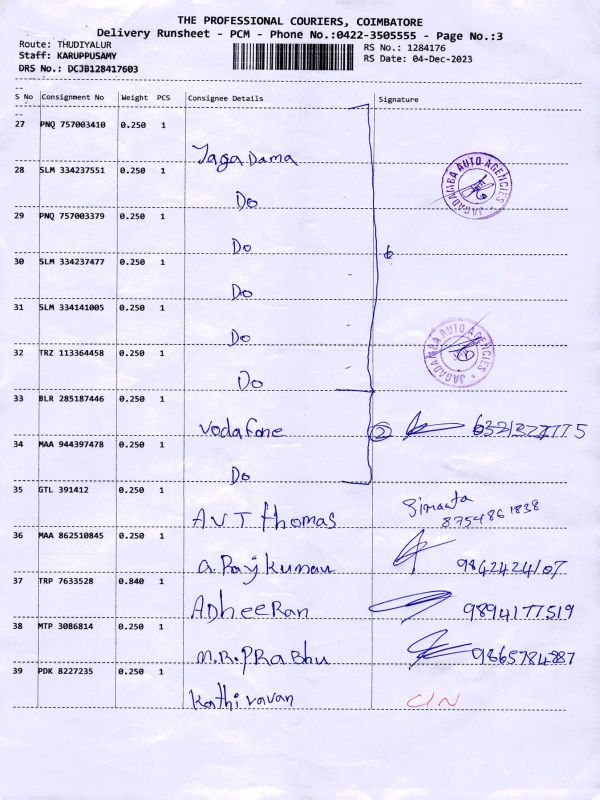 THE PROFESSIONAL COURIERS, COIMBATORE
Delivery Runsheet - PCM - Phone No.:0422-3505555 - Page No.:3
Route: THUDIYALUR RS No.: 1284176
Staff: KARUPPUSAMY RS Date: 04-Dec-2023
DRS No.: DCJB128417603
S No Consignment No Weight PCS Consignee Details Signature
27 PNQ 757003410 0.250 1
Jaga Dama
28 SLM 334237551 0.250 1
JAGADAMBA AUTO AGENCIES
Do
29 PNQ 757003379 0.250 1
Do 6
30 SLM 334237477 0.250 1
Do
31 SLM 334141005 0.250 1
Do
JAGADAMBA AUTO AGENCIES
32 TRZ 113364458 0.250 1
Do
33 BLR 285187446 0.250 1
Vodafone 2
34 MAA 944397478 0.250 1
Do
35 GTL 391412 0.250 1
AVT thomas 8754861838
36 MAA 862510845 0.250 1
a. Raj kumar 9842424107
37 TRP 7633528 0.840 1
ADheeRan 9894177519
38 MTP 3086814 0.250 1
M.R. PRabhu
39 PDK 8227235 0.250 1
Kathiravan C/N